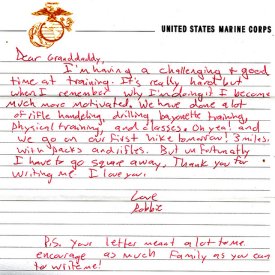 UNITED STATES MARINE CORPS
Dear Granddaddy,
I'm having a challenging & good
time at training. It's really hard but
when I remember why I'm doing it I become
much more motivated. We have done alot
of rifle handeling, drilling, bayonette training,
physical training, and classes. Oh yea! and
we go on our first hike tomorrow! 3 miles.
with packs and rifles. But unfortunatly
I have to go square away. Thank you for
writing me. I love you.
Love
Robbie
P.S. Your letter meant alot to me.
encourage as much family as you can
to write me!